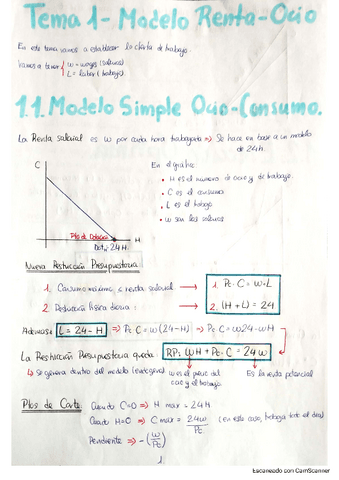 Tema 1- Modelo Renta-Ocio
En este tema vamos a establecer la oferta de trabajo.
Vamos a tener { w = wages (salarios)
L = labor (trabajo)
1.1. Modelo Simple Ocio-Consumo.
La Renta salarial es W por cada hora trabajada => Se hace en base a un modelo
de 24H.
C
H
Pto de Dotación
Dot. 24 H.
En el gráfico:
• H es el número de ocio y de trabajo.
• C es el consumo
• L es el trabajo
• W son los salarios
Nueva Restricción Presupuestaria:
1. Consumo máximo ≤ renta salarial → 1. Pc·C = W·L
2. Restricción física diaria: → 2. (H + L) = 24
Además: L = 24 - H => Pc·C = W(24-H) => Pc·C = W24-WH
La Restricción Presupuestaria queda: RP: WH + Pc·C = 24W
↳ Se genera dentro del modelo (endógena)
W es el precio del
ocio y el trabajo.
Es la renta potencial
Ptos de Corte:
Cuando C=0 => H max = 24H
Cuando H=0 => C max = 24W/Pc (en este caso, trabaja todo el día)
Pendiente => - (W/Pc)
1
Escaneado con CamScanner